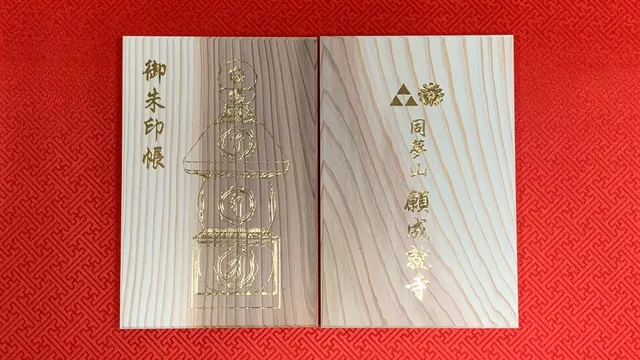 御朱印帳
同夢山 願成就寺